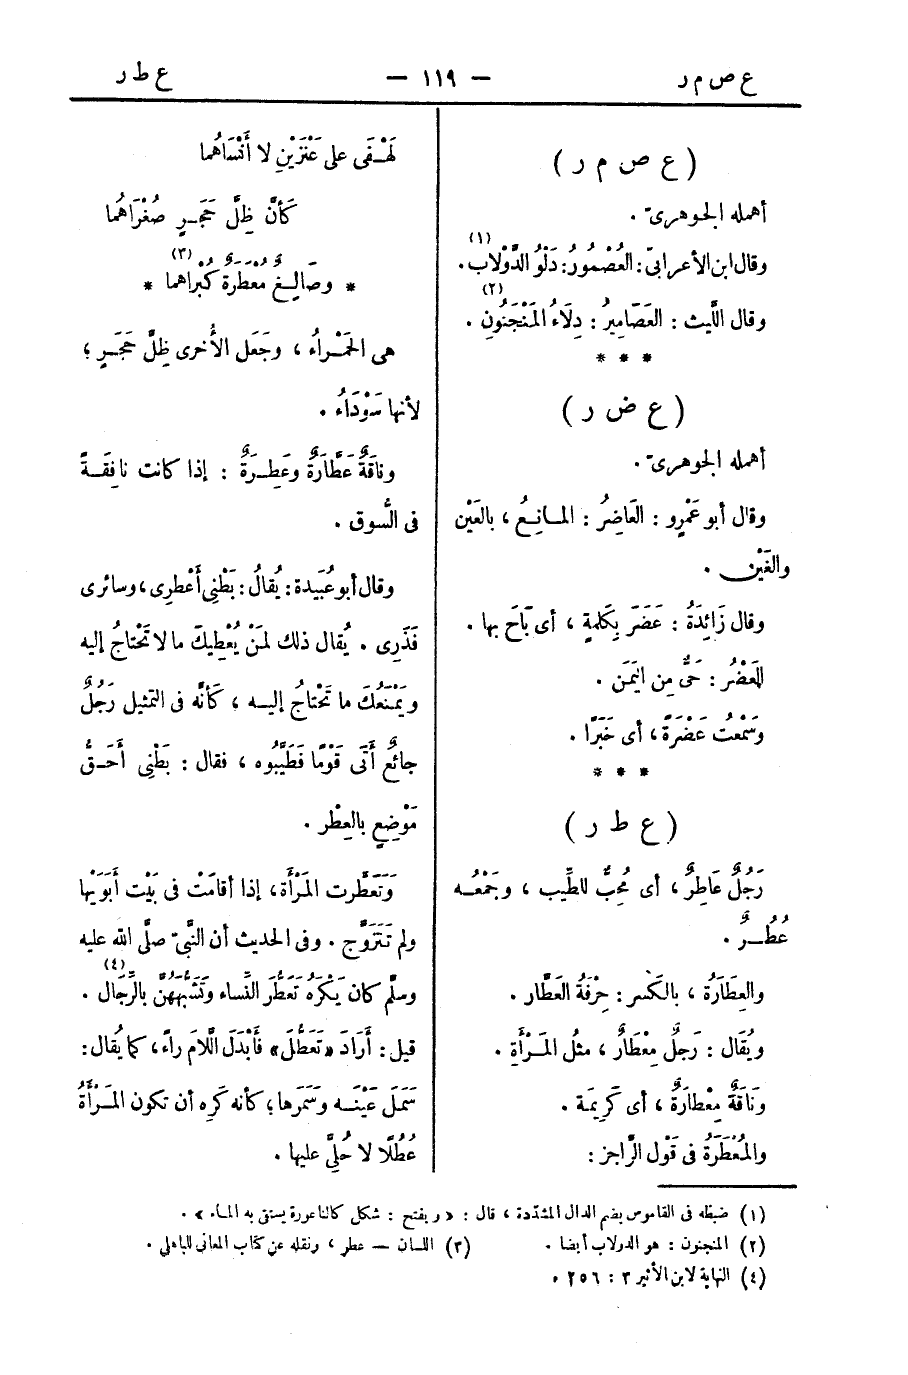 ع ص م ر — ١١٩ — ع ط ر
( ع ص م ر )
أهمله الجوهرىّ .
وقال ابن الأعرابىّ : العُصْمُورُ : دَلْوُ الدُّولَاب (١) .
وقال اللَّيث : العَصَامِيرُ : دِلَاءُ المَنْجَنُونِ (٢) .
* * *
( ع ض ر )
أهمله الجوهرىّ .
وقال أبو عَمْرٍو : العَاضِرُ : المـانِـعُ ، بالعَيْن
والغَيْن .
وقال زَائِدَةُ : عَضَرَ بِكَلمةٍ ، أى بَاحَ بها .
العَضْرُ : حَىٌّ مِن اليَمَن .
وسَمْعت عَضْرَةً ، أى خَبَرًا .
* * *
( ع ط ر )
رَجُلٌ عَاطِرٌ ، أى مُحِبٌّ للطِّيب ، وجَمْعُـه
عُطُـرٌ .
والعِطَارَةُ ، بالكَسْر : حِرْفَةُ العَطَّار .
ويُقَال : رَجلٌ مِعْطَارٌ ، مثلُ المَـرْأَةِ .
ونَاقَةٌ مِعْطارَةٌ ، أى كَرِيمَة .
والمُعْطَرَةُ فى قَوْل الرَّاجز :
لَهْـفَى على عَنْزَيْنِ لا أَنْسَاهُما
كَأنَّ ظِلَّ حَجَـرٍ صُغْرَاهُما
* وصَالِـغٌ مُعْطَرَةٌ كُبْرَاهما (٣) *
هى الحَمْـراءُ ، وجَعَل الأُخرى ظِلَّ حَجَـرٍ ؛
لأنها سَوْدَاءُ .
وناقَةٌ عَطَّارَةٌ وعَطِـرَةٌ : إذا كانت نافِقَـةً
فى السُّوق .
وقال أبو عُبَيدة : يُقالُ : بَطْنِى أَعْطِرِى ، وسائرى
فَذَرِى . يُقال ذلك لمَنْ يُعْطِيكَ ما لا تَحْتاجُ إليه
ويَمْنَعُكَ ما تَحْتاجُ إليـه ؛ كأنَّه فى التمثيل رَجُلٌ
جائعٌ أَتَى قَوْمًا فَطَيَّبُوه ، فقال : بَطْنِى أَحَـقُّ
مَوْضِعٍ بالعِطْر .
وتَعَطَّرت المَرْأة ، إذا أقامَتْ فى بَيْت أَبَوَيْها
ولم تَتَزَوَّج . وفى الحديث أن النَّبىّ صلَّى الله عليه
وسلَّم كان يَكْرَهُ تَعَطُّرَ النِّساء وتَشَبُّهَهُنّ بالرِّجَال (٤) .
قيل : أَرَادَ «تَعَطُّلَ» فَأَبْدَلَ اللَّامَ راءً ، كما يُقال :
سَمَلَ عَيْنَـه وسَمَرها ؛ كأنه كَرِه أن تكون المَـرْأَةُ
عُطُلًا لا حُلِىَّ عليها .
(١) ضبطه فى القاموس بضم الدال المشدّدة ، قال : «ويفتح : شكل كالناعورة يستقى به المـاء» .
(٢) المنجنون : هو الدولاب أيضا . (٣) اللسان — عطر ، ونقله عن كتاب المعانى للباهلى .
(٤) النهاية لابن الأثير ٣ : ٢٥٦ .